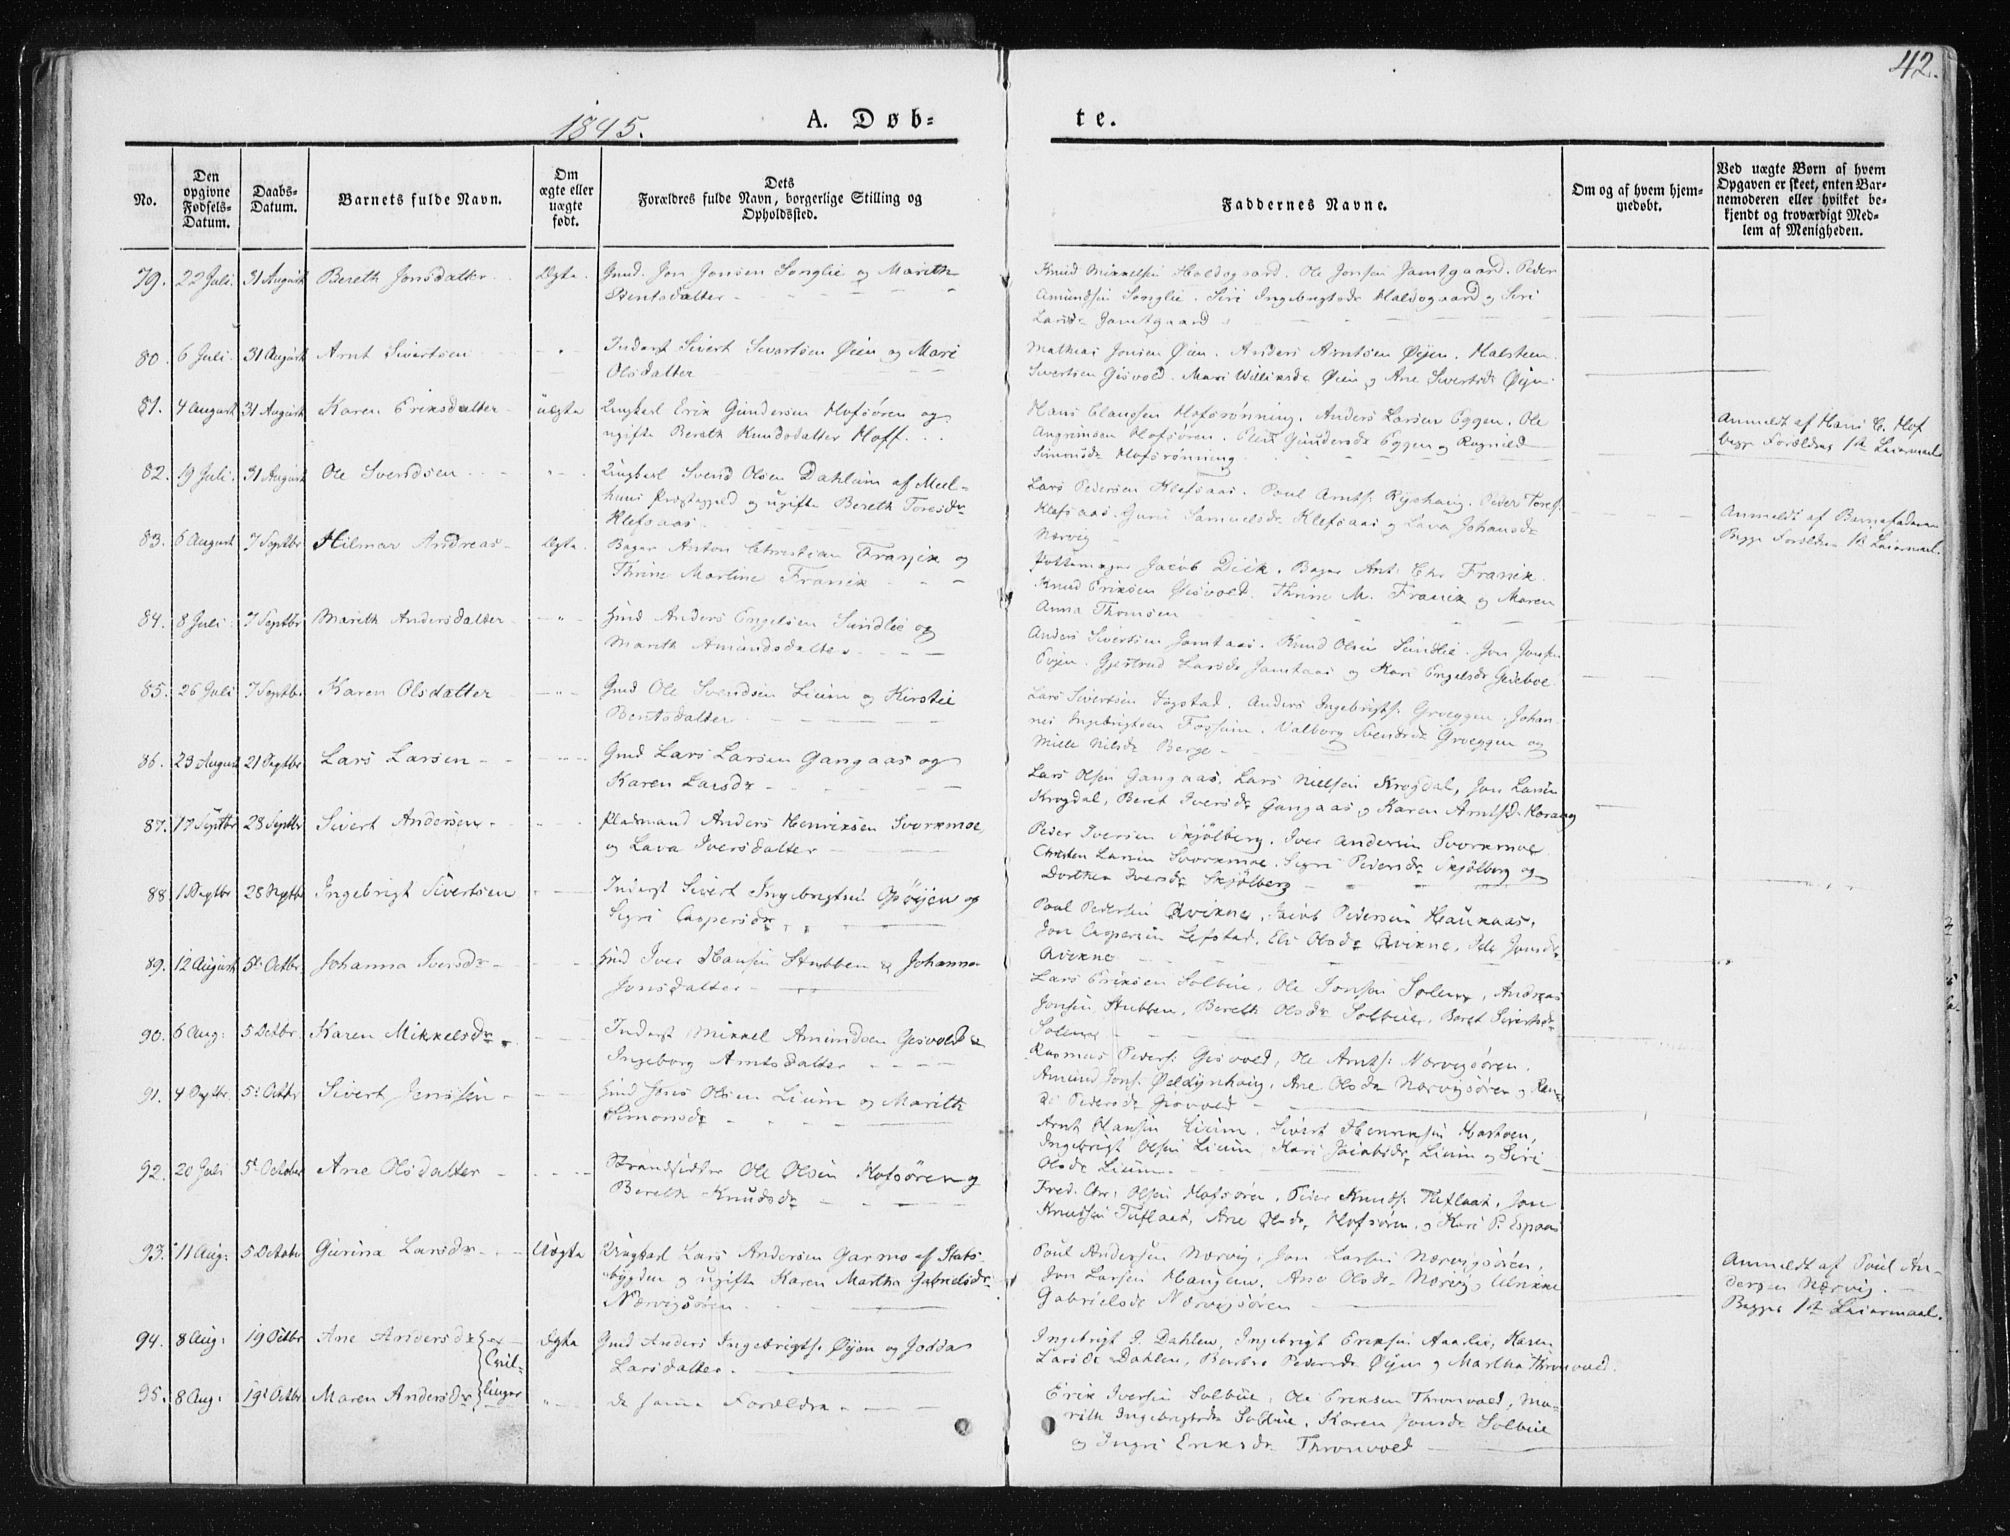 42.
1845.
A. Døb-
te.
No.
Den opgivne Fødsels-Datum.
Daabs-Datum.
Barnets fulde Navn.
Om ægte eller uægte født.
Dets Forældres fulde Navn, borgerlige Stilling og Opholdssted.
Faddernes Navne.
Om og af hvem hjemmedøbt.
Ved uægte Børn af hvem Opgaven er skeet, enten Barnemoderen eller hvilket bekjendt og troværdigt Medlem af Menigheden.
79. 22 Juli. 31 August Bereth Jonsdatter Ægte. Gmd. Jon Jonsen Songlie og Marith
Bentsdatter
Knud Mikkelsen Haldogaard. Ole Jonsen Jamtgaard. Peder
Amundsen Songlie. Siri Ingebrigtsdr Haldogaard og Siri
Larsdr Jamtgaard
80. 6 Juli. 31 August Arnt Sivertsen Inderst Sivert Sivertsen Øien og Mari
Olsdatter
Mathias Jonsen Øien. Anders Arntsen Øijen. Halsteen
Sivertsen Gisvold. Mari Willixsdr Øien og Ane Sivertsdr Øijen
81. 4 August 31 August Karen Eriksdatter uægte Ungkarl Erik Gundersen Hofsøren og
ugifte Bereth Knudsdatter Hoff
Hans Claussen Hofsrønning. Anders Larsen Eggen. Ole
Angrimsen Hofsøren. Gundersdr Eggen og Ragnild
Simonsdr Hofsrønning
Anmeldt af Hans C. Hof
begge Forældres 1ste Leiermaal
82. 19 Juli. 31 August Ole Svendsen Ungkarl Svend Olsen Dahlum af Meel-
huus Præstegjeld og ugifte Bereth Toresdr
Klefsaas
Lars Pedersen Klefsaas. Poul Arnts. Ryshaug. Peder Tores.
Klefsaas. Guru Samuelsdr Klefsaas og Lava Johansdr
Nervig
Anmeldt af Barnefaderen
Begge Forældres 1st Leiermaal.
83. 6 August 7 Septbr Hilmar Andreas Ægte. Bager Anton Christian Franzix og
Thrine Martine Franzix
Pottemager Jacob Dick. Bager Ant: Chr Franzix.
Knud Eriksen Gisvold. Thrine M. Franzix og Maren
Anna Thomsen
84. 8 Juli 7 Septbr Marith Andersdatter Gmd Anders Engelsen Sundlie og
Marith Amundsdatter
Anders Sivertsen Jamtaas. Knud Olsen Sundlie. Jon Jonsen
Evjen. Gjertrud Larsdr Jamtaas og Kari Engelsdr
85. 26 Juli 7 Septbr Karen Olsdatter Gmd Ole Svendsen Lium og Kirstie
Bentsdatter
Lars Sivertsen Fogstad. Anders Ingebrigts. Groeggen. Johan-
nes Ingebrigtsen Fossum. Valborg Svendsdr Groeggen og
Mille Nilsdr Berge
86. 23 August 21 Septbr Lars Larsen Gmd Lars Larsen Gangaas og
Karen Larsdr
Lars Olsen Gangaas, Lars Nielsen Krogdal, Jon Larsen
Krogdal, Beret Iversdr Gangaas og Karen Arntsd. Horang
87. 17 Septbr 28 Septbr Sivert Andersen Pladsmand Anders Henriksen Svorkmoe
og Lava Iversdatter
Peder Iversen Skjølberg. Iver Andersen Svorkmoe
Christen Larsen Svorkmoe. Sigri Pedersdr Skjølberg og
Dorthea Iversdr Skjølberg
88 1 Septbr 28 Septbr Ingebrigt Sivertsen Inderst Sivert Ingebrigtsen Opøijen og
Sigri Caspersdr
Poul Pedersen Qvikne, Jacob Pedersen Haukaas,
Jon Caspersen Lefstad, Eli Olsdr Qvikne, Jonsdr
Qvikne
89. 12 August 5te Octbr Johanna Iversdr Gmd Iver Hansen Stubben & Johanna
Jonsdatter
Lars Eriksen Solbue, Ole Jonsen Solem, Andreas
Jonsen Stubben, Bereth Olsdr Solbue, Beret Sivertsdr
Solem
90. 6 Aug: 5 Octbr. Karen Mikkelsdr. Inderst Mikkel Amundsen Gisvold &
Ingeborg Arntsdatter
Rasmus Peders: Gisvold, Ole Arnts. Nærvigsøren.
Amund Jons. Ane Olsdr Nærvigsøren og Ran-
di Pedersdr Gisvold
91. 4 Septbr 5te Octbr Sivert Jenssen Gmd Jens Olsen Lium og Marith
Simonsdr
Arnt Hansen Lium. Sivert Henriksen Hastven,
Ingebrigt Olsen Lium Kari Jacobsdr Lium og Siri
Olsdr Lium
92. 20 Juli 5te October Ane Olsdatter Strandsidder Ole Olsen Hofsøren og
Bereth Knudsdr
Fred. Chr: Olsen Hofsøren. Peder Knuds: Tuflaat, Jon
Knudsen Tuflaat, Ane Olsdr Hofsøren, og Kari P. Espaas
93. 11 Aug: 5 Octobr Gurina Larsdr Uægte Ungkarl Lars Andersen Garmo af Stads-
bygden og ugifte Karen Martha Gabrielsdr
Nærvigsøren
Poul Andersen Nærvig, Jon Larsen Nærvigsøren,
Jon Larsen Haugen, Ane Olsdr Nærvig, Ulrikke
Gabrielsdr Nærvigsøren
Anmeldt af Poul An-
dersen Nærvig.
Begges 1ste Leiermaal.
94. 8 Aug: 19 Octbr Ane Andersdr er Ægte Gmd Anders Ingebrigts. Øyen og Jodda
Larsdatter.
Ingebrigt J. Dahlen, Ingebrigt Eriksen Aaarlie, Karen
Larsdr Dahlen, Berbro Pedersdr Øijen og Martha Thronvold.
95. 8 Aug: 19de Octbr. Maren Andersdr Tvil-
linger de samme Forældre
Erik Iversen Solbue, Ole Eriksen Thronvold, Ma-
rith Ingebrigtsdr Solbue, Karen Jonsdr Solbue
og Ingri Eriksdr Thronvold